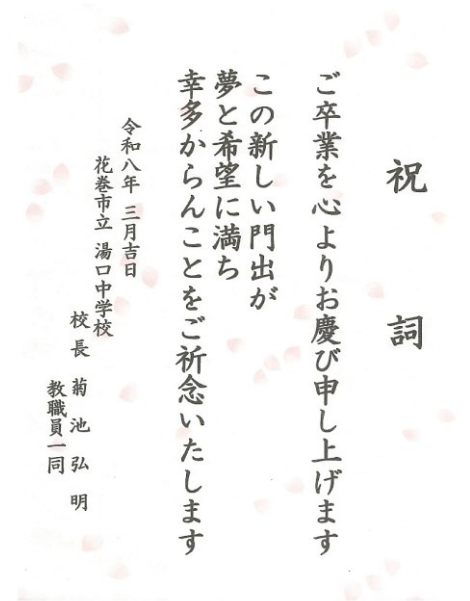 祝詞
ご卒業を心よりお慶び申し上げます
この新しい門出が
夢と希望に満ち
幸多からんことをご祈念いたします
令和八年 三月吉日
花巻市立 湯口中学校
校長 菊池弘明
教職員一同